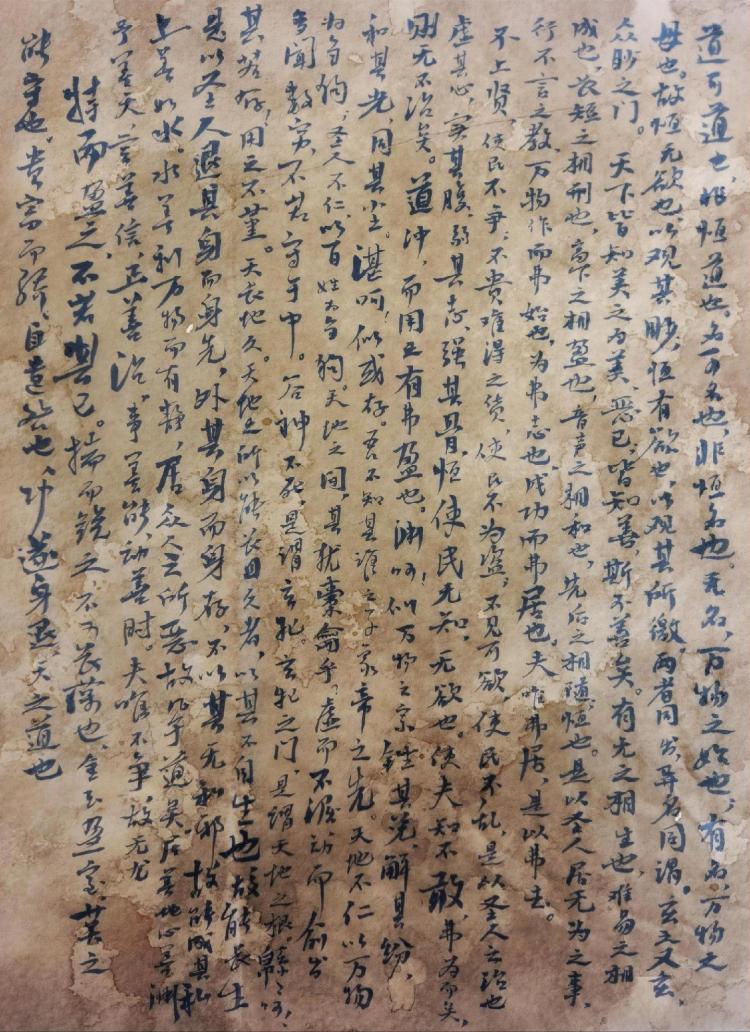 道可道也，非恒道也。名可名也，非恒名也。无名，万物之始也，有名，万物之
母也。故恒无欲也，以观其眇，恒有欲也，以观其所徼。两者同出，异名同谓。玄之又玄，
众眇之门。天下皆知美之为美，恶已，皆知善，斯不善矣。有无之相生也，难易之相
成也，长短之相刑也，高下之相盈也，音声之相和也，先后之相随，恒也。是以圣人居无为之事，
行不言之教，万物作而弗始也，为弗志也，成功而弗居也。夫唯弗居，是以弗去。
不上贤，使民不争；不贵难得之货，使民不为盗，不见可欲，使民不乱，是以圣人之治也
虚其心，实其腹，弱其志，强其骨，恒使民无知，无欲也。使夫知不敢，弗为而矣，
则无不治矣。道冲，而用之有弗盈也。渊呵！似万物之宗，锉其兑，解其纷，
和其光，同其尘。湛呵！似或存。吾不知其谁之子，象帝之先。天地不仁，以万物
为刍狗，圣人不仁，以百姓为刍狗。天地之间，其犹橐龠乎？虚而不淈，动而俞出
多闻数穷，不若守于中。谷神不死，是谓玄牝。玄牝之门，是谓天地之根，绵绵呵，
其若存！用之不堇。天长地久。天地之所以能长且久者，以其不自生也，故能长生
是以圣人退其身而身先，外其身而身存，不以其无私邪，故能成其私
上善如水。水善利万物而有静，居众人之所恶，故几乎道矣。居善地，心善渊
予善天，言善信，正善治，事善能，动善时。夫唯不争，故无尤
持而盈之，不若其已。揣而锐之，不可长葆也，金玉盈室，莫之
能守也。贵富而骄，自遗咎也，功遂身退，天之道也